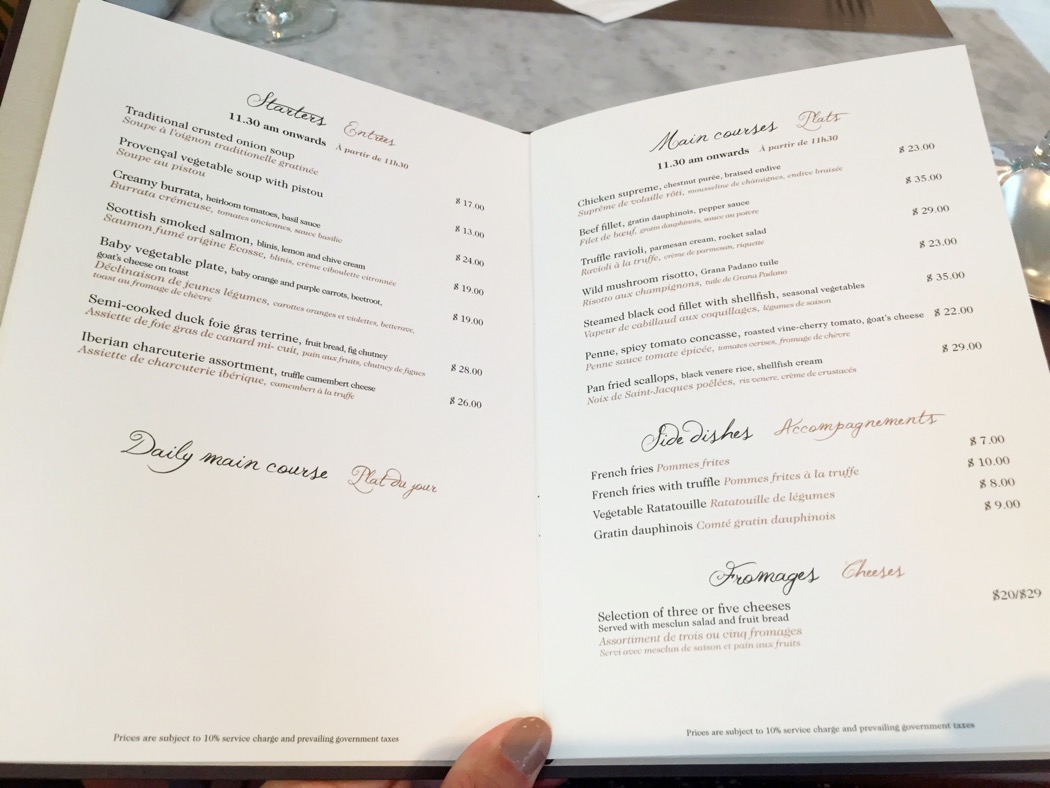 Starters Entrées
11.30 am onwards À partir de 11h30
Traditional crusted onion soup $ 17.00
Soupe à l'oignon traditionelle gratinée
Provençal vegetable soup with pistou $ 13.00
Soupe au pistou
Creamy burrata, heirloom tomatoes, basil sauce $ 24.00
Burrata crémeuse, tomates anciennes, sauce basilic
Scottish smoked salmon, blinis, lemon and chive cream $ 19.00
Saumon fumé origine Ecosse, blinis, crème ciboulette citronnée
Baby vegetable plate, baby orange and purple carrots, beetroot, $ 19.00
goat's cheese on toast
Déclinaison de jeunes légumes, carottes oranges et violettes, betterave,
toast au fromage de chèvre
Semi-cooked duck foie gras terrine, fruit bread, fig chutney $ 28.00
Assiette de foie gras de canard mi- cuit, pain aux fruits, chutney de figues
Iberian charcuterie assortment, truffle camembert cheese $ 26.00
Assiette de charcuterie ibérique, camembert à la truffe
Daily main course Plat du jour
Prices are subject to 10% service charge and prevailing government taxes
Main courses Plats
11.30 am onwards À partir de 11h30
Chicken supreme, chestnut purée, braised endive $ 23.00
Suprême de volaille rôti, mousseline de châtaignes, endive braisée
Beef fillet, gratin dauphinois, pepper sauce $ 35.00
Filet de bœuf, gratin dauphinois, sauce au poivre
Truffle ravioli, parmesan cream, rocket salad $ 29.00
Ravioli à la truffe, crème de parmesan, riquette
Wild mushroom risotto, Grana Padano tuile $ 23.00
Risotto aux champignons, tuile de Grana Padano
Steamed black cod fillet with shellfish, seasonal vegetables $ 35.00
Vapeur de cabillaud aux coquillages, légumes de saison
Penne, spicy tomato concasse, roasted vine-cherry tomato, goat's cheese $ 22.00
Penne sauce tomate épicée, tomates cerises, fromage de chèvre
Pan fried scallops, black venere rice, shellfish cream $ 29.00
Noix de Saint-Jacques poêlées, riz venere, crème de crustacés
Side dishes Accompagnements
French fries Pommes frites $ 7.00
French fries with truffle Pommes frites à la truffe $ 10.00
Vegetable Ratatouille Ratatouille de légumes $ 8.00
Gratin dauphinois Comté gratin dauphinois $ 9.00
Fromages Cheeses
Selection of three or five cheeses $20/$29
Served with mesclun salad and fruit bread
Assortiment de trois ou cinq fromages
Servi avec mesclun de saison et pain aux fruits
Prices are subject to 10% service charge and prevailing government taxes